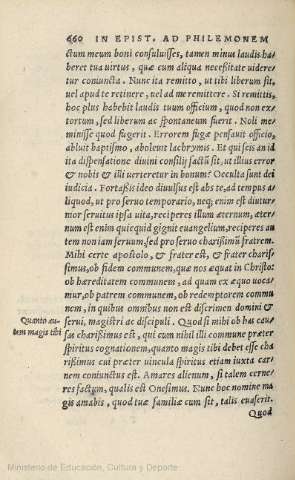 660 IN EPIST. AD PHILEMONEM
ctum meum boni consuluisses, tamen minus laudis ha-
beret tua virtus, quæ cum aliqua necessitate videre-
tur coniuncta. Nunc ita remitto, ut tibi liberum sit,
vel apud te retinere, vel ad me remittere. Si remittis,
hoc plus habebit laudis tuum officium, quod non ex-
tortum, sed liberum ac spontaneum fuerit. Noli me-
minisse quod fugerit. Errorem fugæ pensavit officio,
abluit baptismo, abolevit lachrymis. Et qui scis an id
ita dispensatione divini consilij factū sit, ut illius error
& nobis & illi verteretur in bonum? Occulta sunt dei
iudicia. Fortaßis ideo divulsus est abs te, ad tempus a-
liquod, ut pro servo temporario, neq; enim est diutur-
nior servitus ipsa vita, reciperes illum æternum, æter-
num est enim quicquid gignit euangelium, reciperes au
tem non iam servum, sed pro servo charißimū fratrem.
Mihi certe apostolo, & frater est, & frater charis-
simus, ob fidem communem, quæ nos æquat in Christo:
ob hæreditatem communem, ad quam ex æquo voca-
mur, ob patrem communem, ob redemptorem commu
nem, in quibus omnibus non est discrimen domini &
servi, magistri ac discipuli. Quod si mihi ob has cau-
Quanto au-
tem magis tibi
sas charißimus est, qui cum nihil illi commune præter
spiritus cognationem, quanto magis tibi debet esse cha
rißimus cui præter vincula spiritus etiam iuxta car-
nem coniunctus est. Amares alienum, si talem cerne-
res factum, qualis est Onesimus. Nunc hoc nomine ma
gis amabis, quod tuæ familiæ cum sit, talis evaserit.
Quod
Ministerio de Educación, Cultura y Deporte